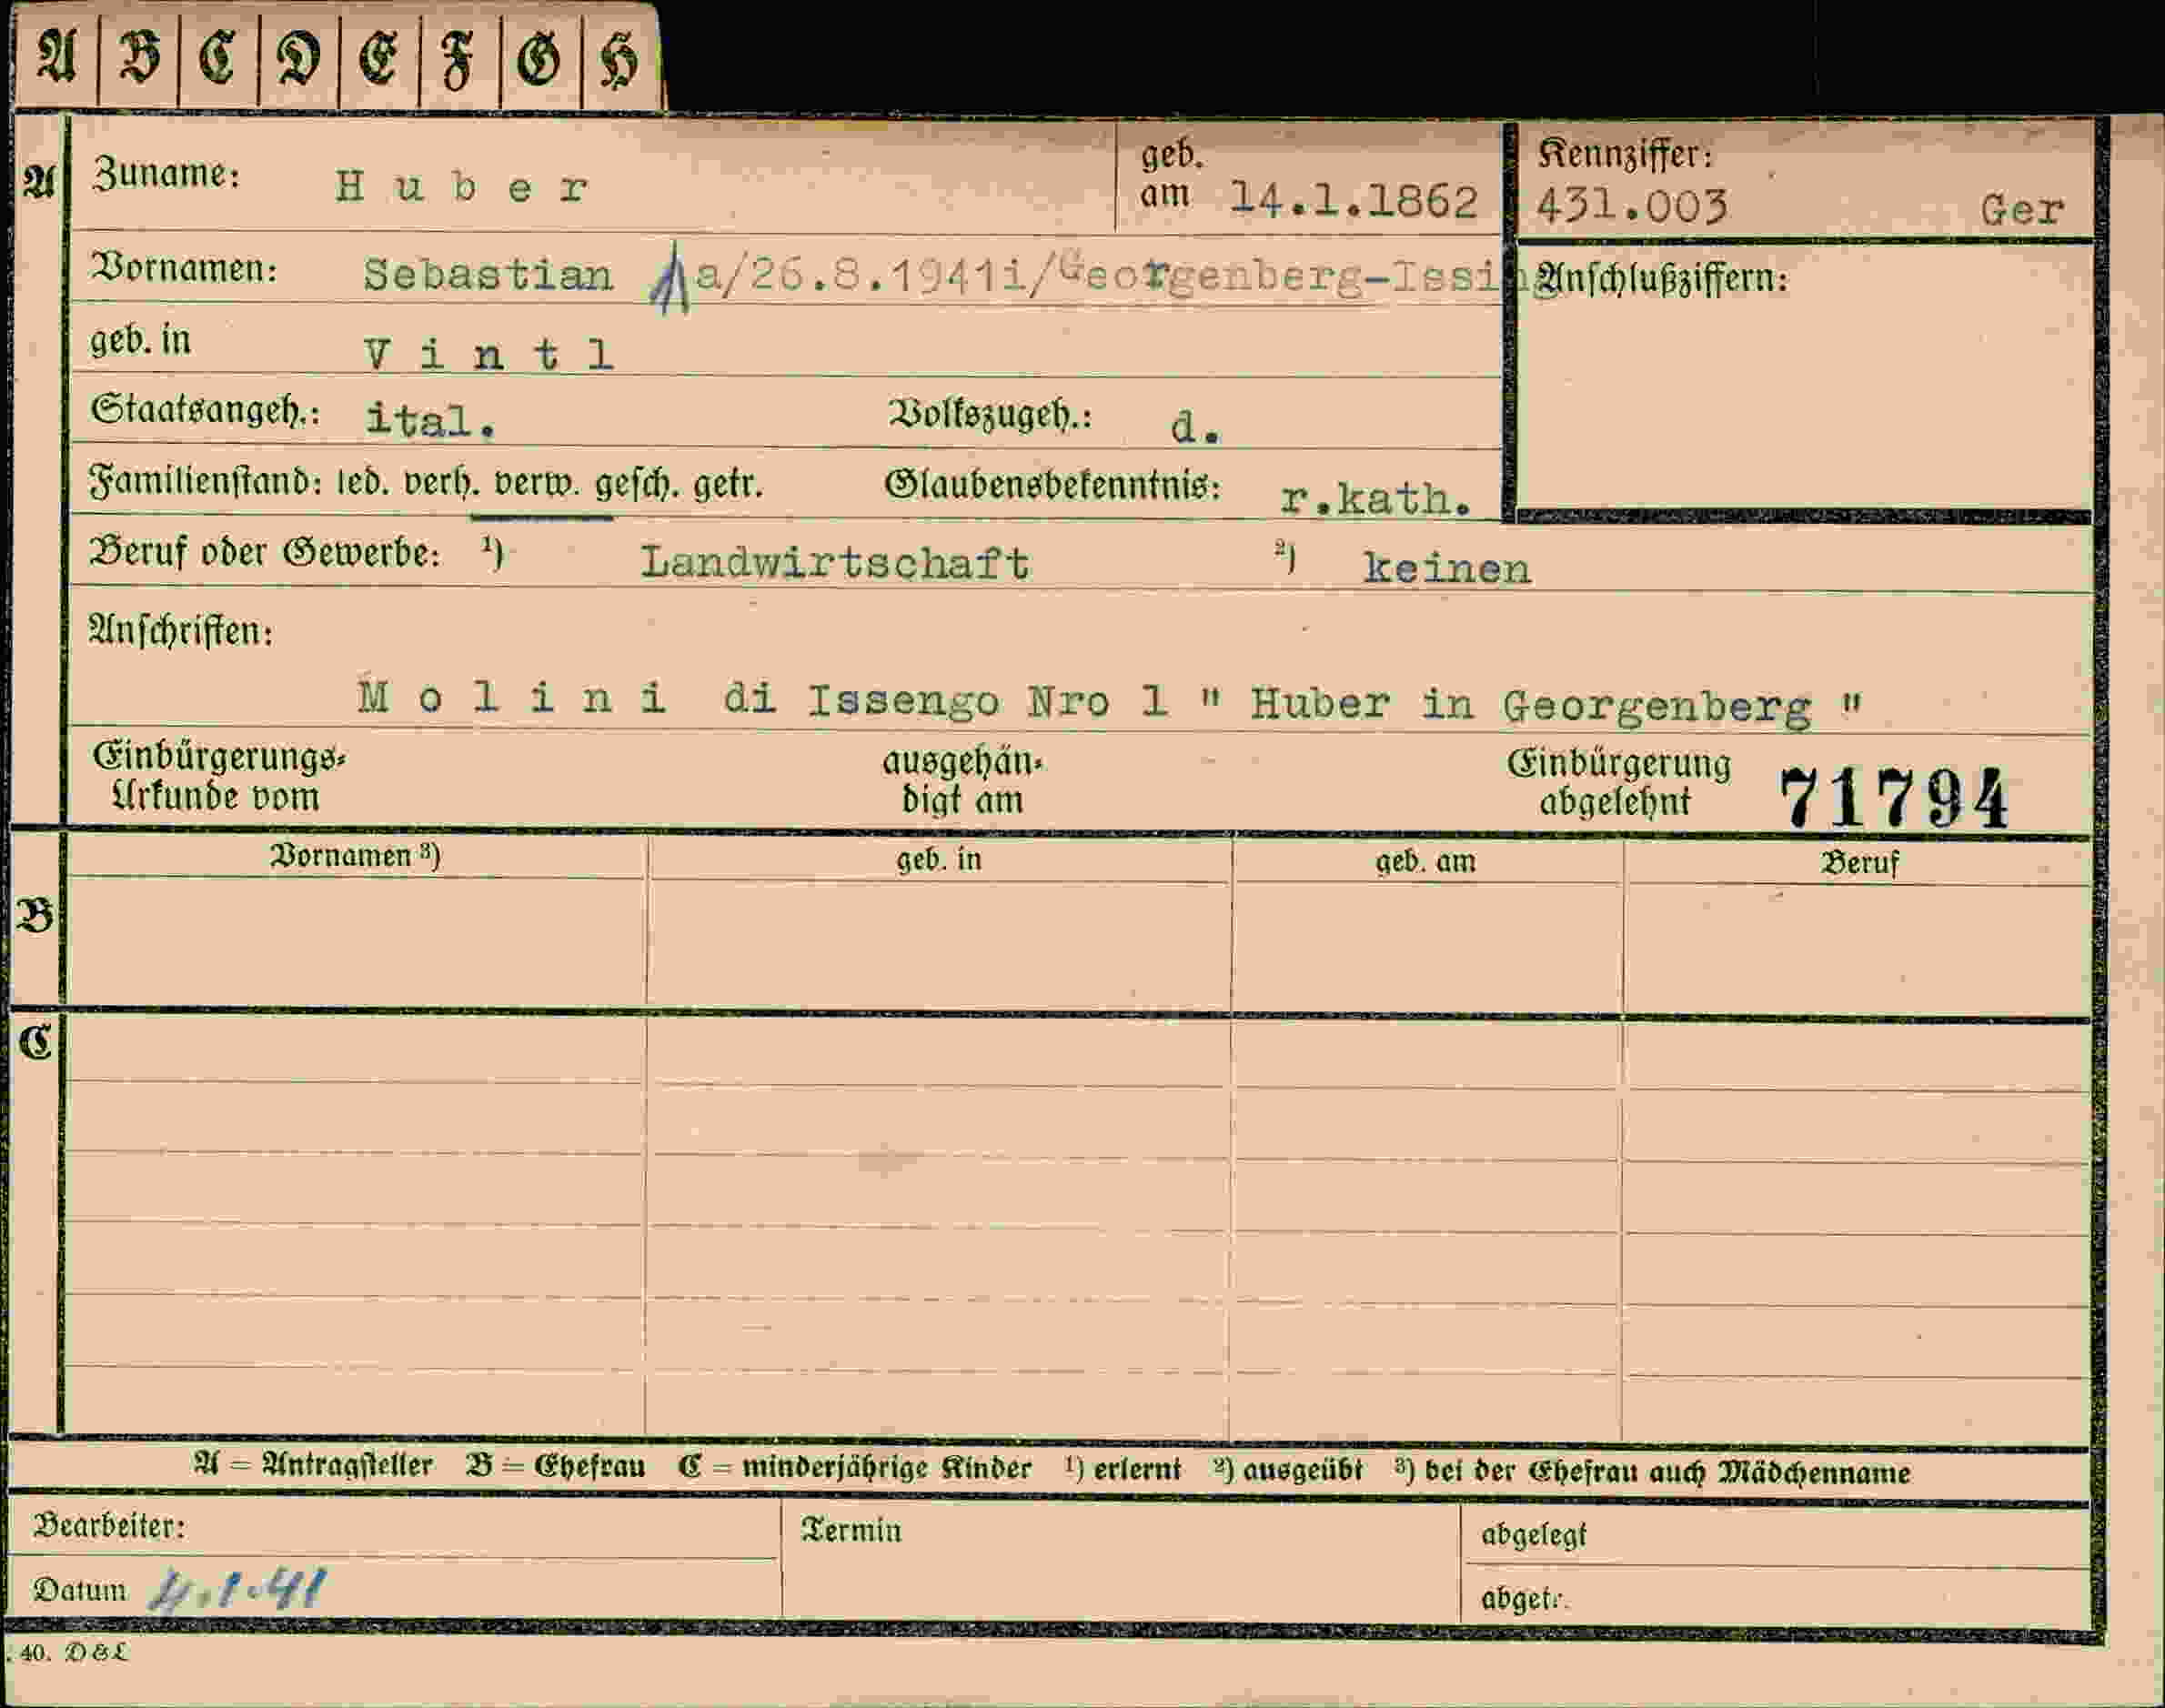 A B C D E F G H
A Zuname: Huber geb. am 14.1.1862 Kennziffer: 431.003 Ger
Vornamen: Sebastian a/26.8.1941i/Georgenberg-Issing Anschlußziffern:
geb. in Vintl
Staatsangeh.: ital. Volkszugeh.: d.
Familienstand: led. verh. verw. gesch. getr. Glaubensbekenntnis: r.kath.
Beruf oder Gewerbe: 1) Landwirtschaft 2) keinen
Anschriften:
Molini di Issengo Nro 1 " Huber in Georgenberg "
Einbürgerungs- ausgehän- Einbürgerung
Urkunde vom digt am abgelehnt 71794
Vornamen 3) geb. in geb. am Beruf
B
C
A = Antragsteller B = Ehefrau C = minderjährige Kinder 1) erlernt 2) ausgeübt 3) bei der Ehefrau auch Mädchenname
Bearbeiter: Termin abgelegt
Datum 4.1.41 abgetr.
40. D&L